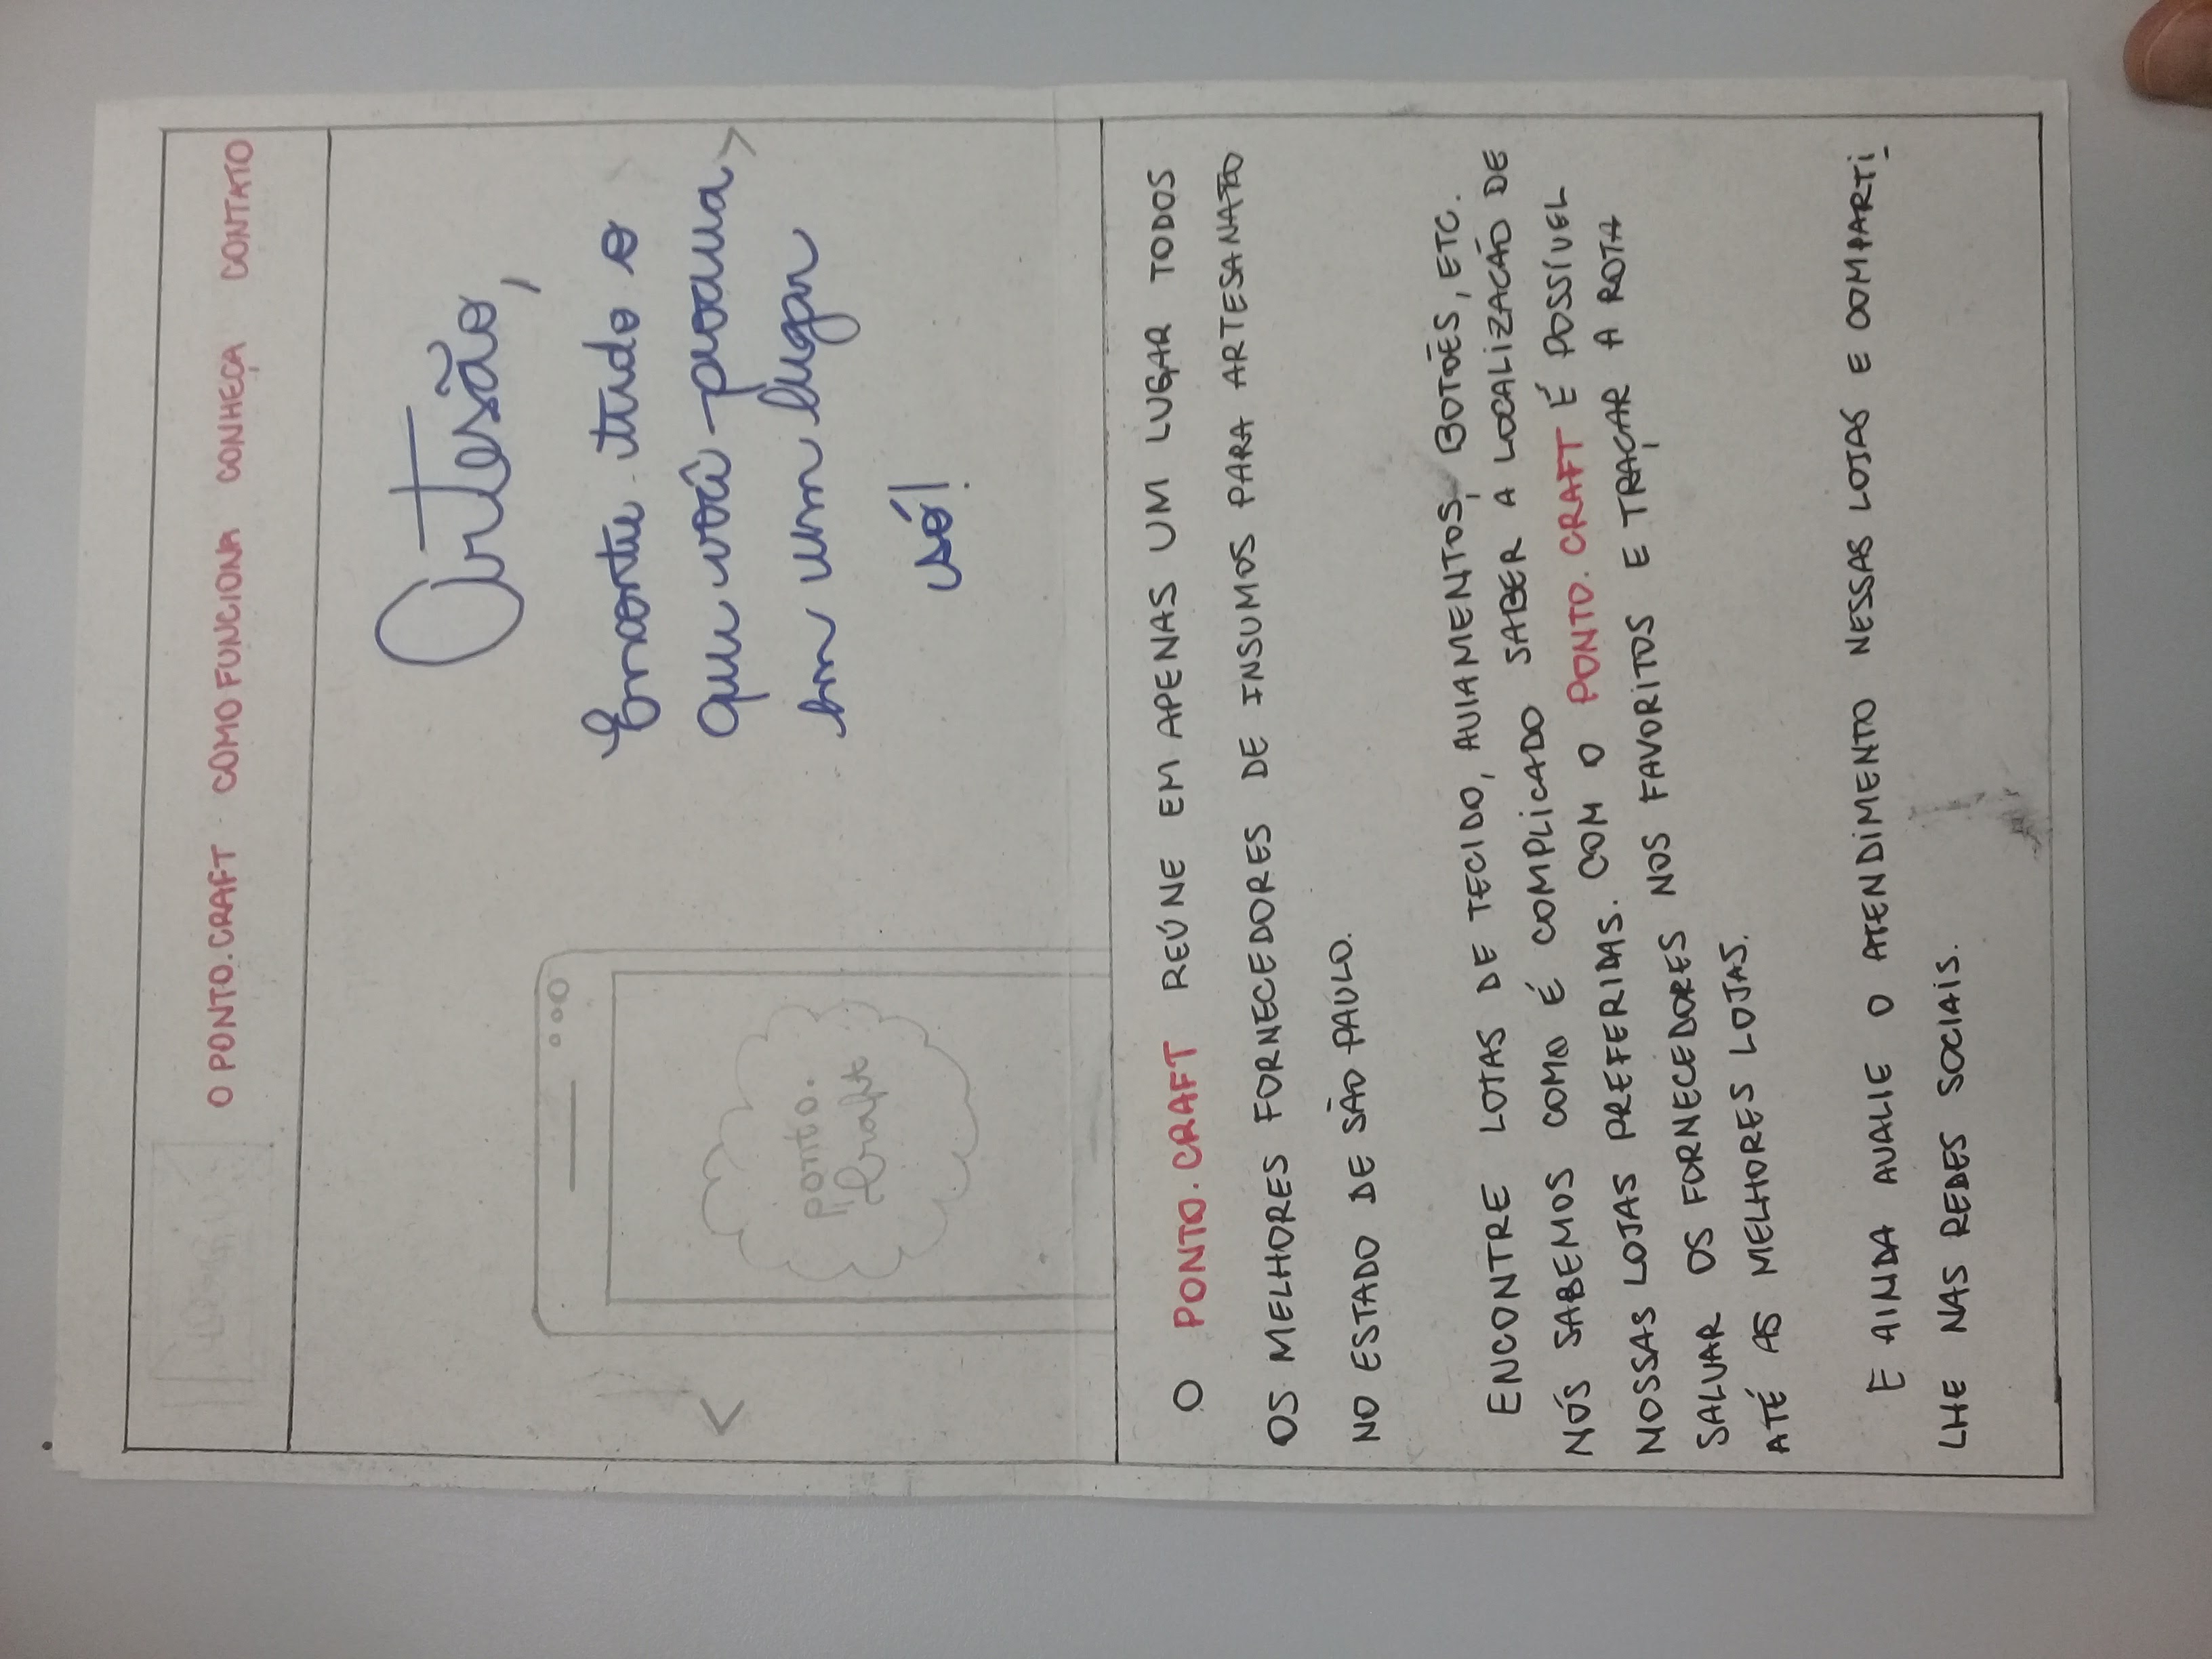 O PONTO.CRAFT COMO FUNCIONA CONHEÇA CONTATO
Artesão,
Encontre tudo o
que você procura
em um lugar
só!
ponto.
craft
O PONTO.CRAFT REÚNE EM APENAS UM LUGAR TODOS
OS MELHORES FORNECEDORES DE INSUMOS PARA ARTESANATO
NO ESTADO DE SÃO PAULO.
ENCONTRE LOTAS DE TECIDO, AVIAMENTOS, BOTÕES, ETC.
NÓS SABEMOS COMO É COMPLICADO SABER A LOCALIZAÇÃO DE
NOSSAS LOJAS PREFERIDAS. COM O PONTO.CRAFT É POSSÍVEL
SALVAR OS FORNECEDORES NOS FAVORITOS E TRAÇAR A ROTA
ATÉ AS MELHORES LOJAS.
E AINDA AVALIE O ATENDIMENTO NESSAS LOJAS E COMPARTI
LHE NAS REDES SOCIAIS.